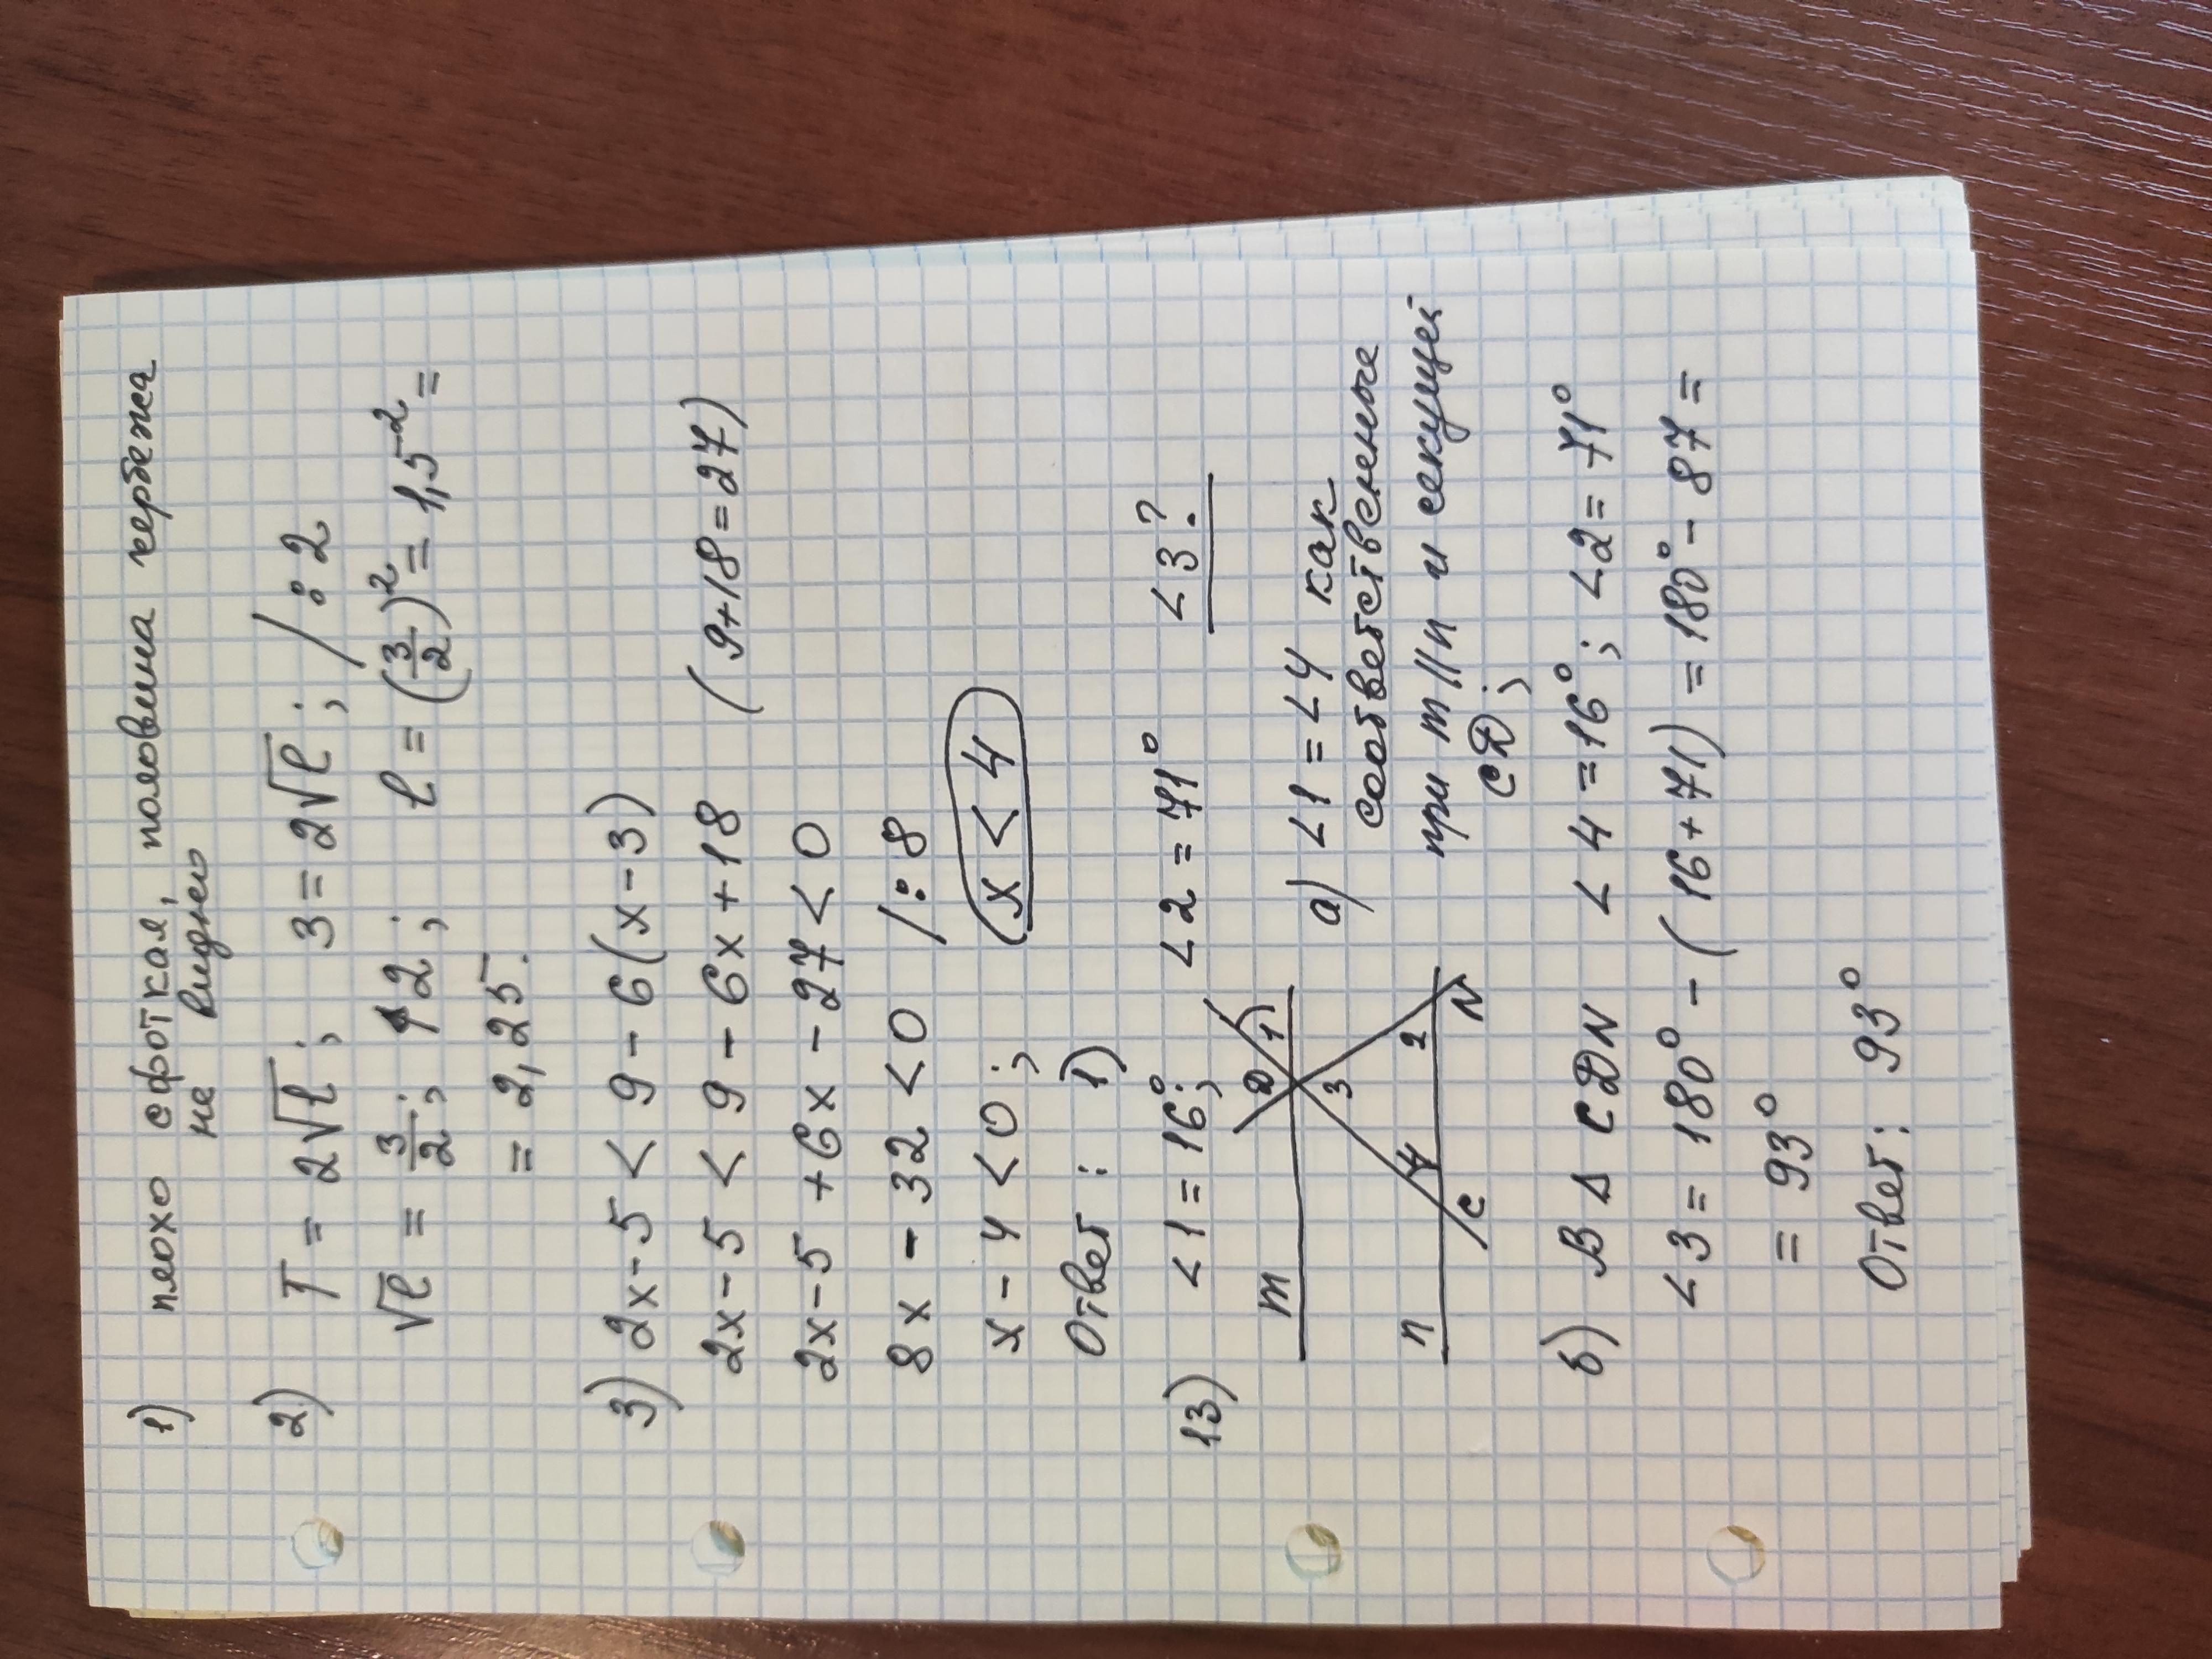 1) плохо сфоткал, половина чертежа
не видно
2) T = 2√l ; 3 = 2√l ; / : 2
√l = 3/2 ; ^2 ; l = (3/2)² = 1,5² =
= 2,25.
3) 2x - 5 < 9 - 6(x - 3)
2x - 5 < 9 - 6x + 18 (9+18=27)
2x - 5 + 6x - 27 < 0
8x - 32 < 0 / : 8
x - 4 < 0 ; x < 4
Ответ : 1)
13) <1 = 16° ; <2 = 71° <3 ?
m D 1 3
n 4 2 C N
а) <1 = <4 как
соответственные
при m || n и секущей
CD ;
б) В Δ CDN <4 = 16° ; <2 = 71°
<3 = 180° - (16+71) = 180° - 87 =
= 93°
Ответ : 93°